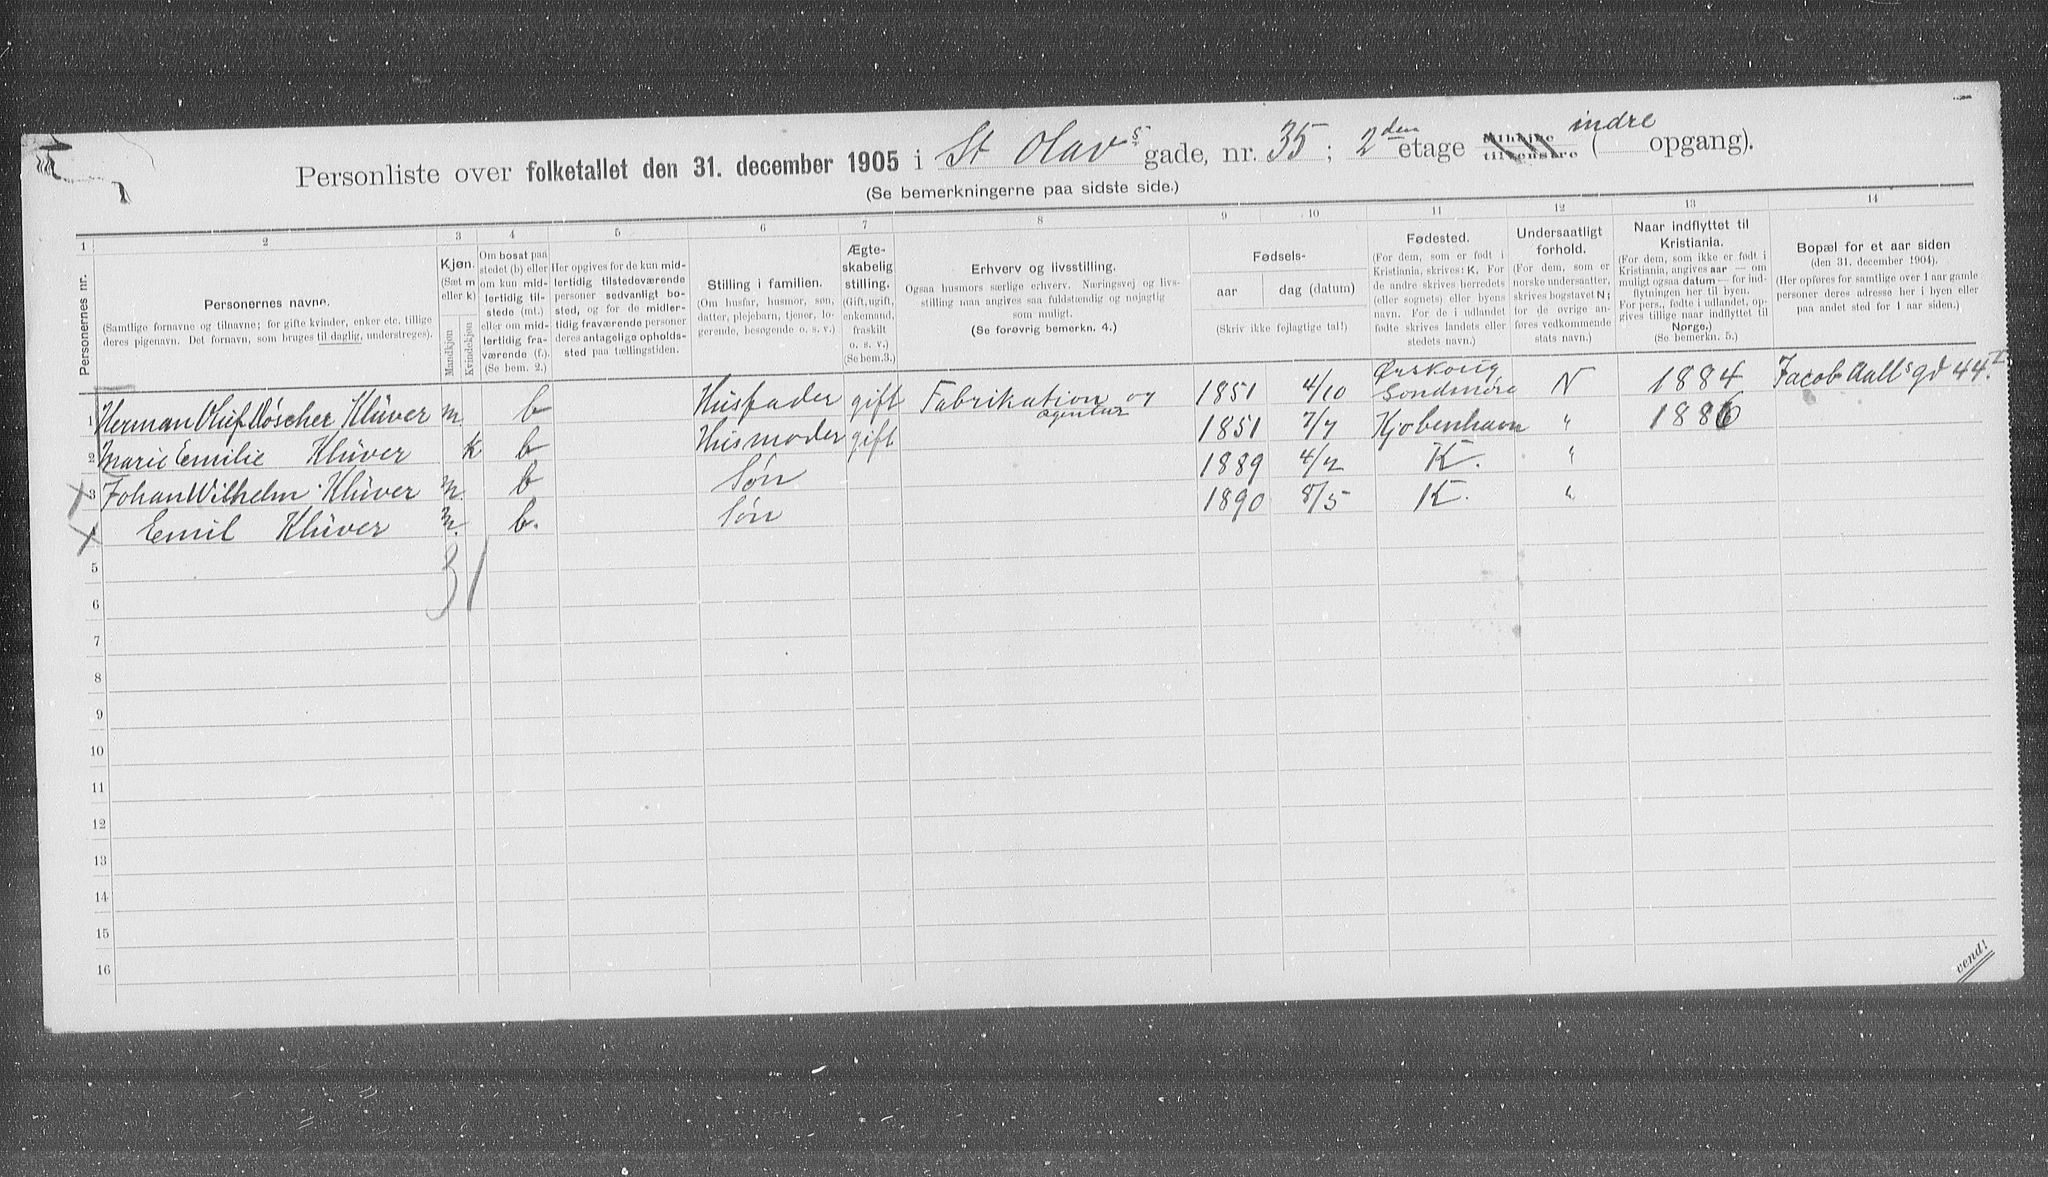 Personliste over folketallet den 31. december 1905 i St Olavs gade, nr. 35; 2den etage indre ( opgang).
(Se bemerkningerne paa sidste side.)
1 2 3 4 5 6 7 8 9 10 11 12 13 14
Personernes nr.
Personernes navne.
(Samtlige fornavne og tilnavne; for gifte kvinder, enker etc. tillige
deres pigenavn. Det fornavn, som bruges til daglig, understreges).
Kjøn.
(Sæt m
eller k)
Mandkjøn
Kvindekjøn
Om bosat paa
stedet (b) eller
om kun mid-
lertidig til-
stede (mt.)
eller om mid-
lertidig fra-
værende (f.).
(Se bem. 2.)
Her opgives for de kun mid-
lertidig tilstedeværende
personer sedvanligt bo-
sted, og for de midler-
tidig fraværende personer
deres antagelige opholds-
sted paa tællingstiden.
Stilling i familien.
(Om husfar, husmor, søn,
datter, plejebarn, tjener, lo-
gerende, besøgende o. s. v.)
Ægte-
skabelig
stilling.
(Gift, ugift,
enkemand,
fraskilt
o. s. v.)
(Se bem.3.)
Erhverv og livsstilling.
Ogsaa husmors særlige erhverv. Næringsvej og livs-
stilling maa angives saa fuldstændig og nøjagtig
som muligt.
(Se forøvrig bemerkn. 4.)
Fødsels-
aar
dag (datum)
(Skriv ikke fejlagtige tal!)
Fødested.
(For dem, som er født i
Kristiania, skrives: K. For
de andre skrives herredets
(eller sognets) eller byens
navn. For de i udlandet
fødte skrives landets eller
stedets navn.)
Undersaatligt
forhold.
(For dem, som er
norske undersaatter,
skrives bogstavet N;
for de øvrige an-
føres vedkommende
stats navn.)
Naar indflyttet til
Kristiania.
(For dem, som ikke er født i
Kristiania, angives aar — om
muligt ogsaa datum — for ind-
flytningen her til byen.
For pers., fødte i udlandet, op-
gives tillige naar indflyttet til
Norge.)
(Se bemerkn. 5.)
Bopæl for et aar siden
(den 31. december 1904).
(Her opføres for samtlige over 1 aar gamle
personer deres adresse her i byen eller
paa andet sted for 1 aar siden.)
1 Herman Oluf Röscher Klüver m b Husfader gift Fabrikation og agentur 1851 4/10 Ørskoug Søndmøre N 1884 Jacob Aalls gd 44 I
2 Marie Emilie Klüver k b Husmoder gift 1851 7/7 Kjøbenhavn " 1886
3 Johan Wilhelm Klüver m b Søn 1889 4/2 K. "
Emil Klüver m. b. Søn 1890 8/5 K. "
3 1
5
6
7
8
9
10
11
12
13
14
15
16
vend!